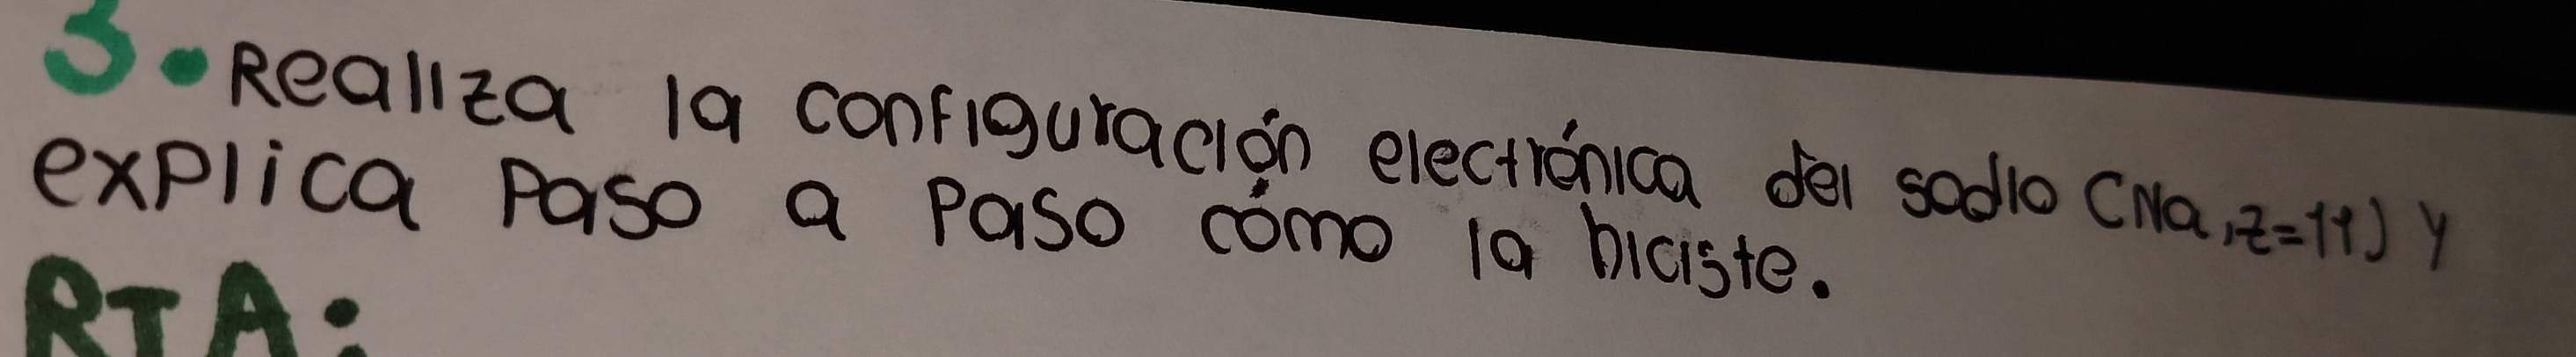 3. Realiza la configuración electrónica del sodio (Na, z=11) y
explica Paso a Paso cómo la hiciste.
RTA: